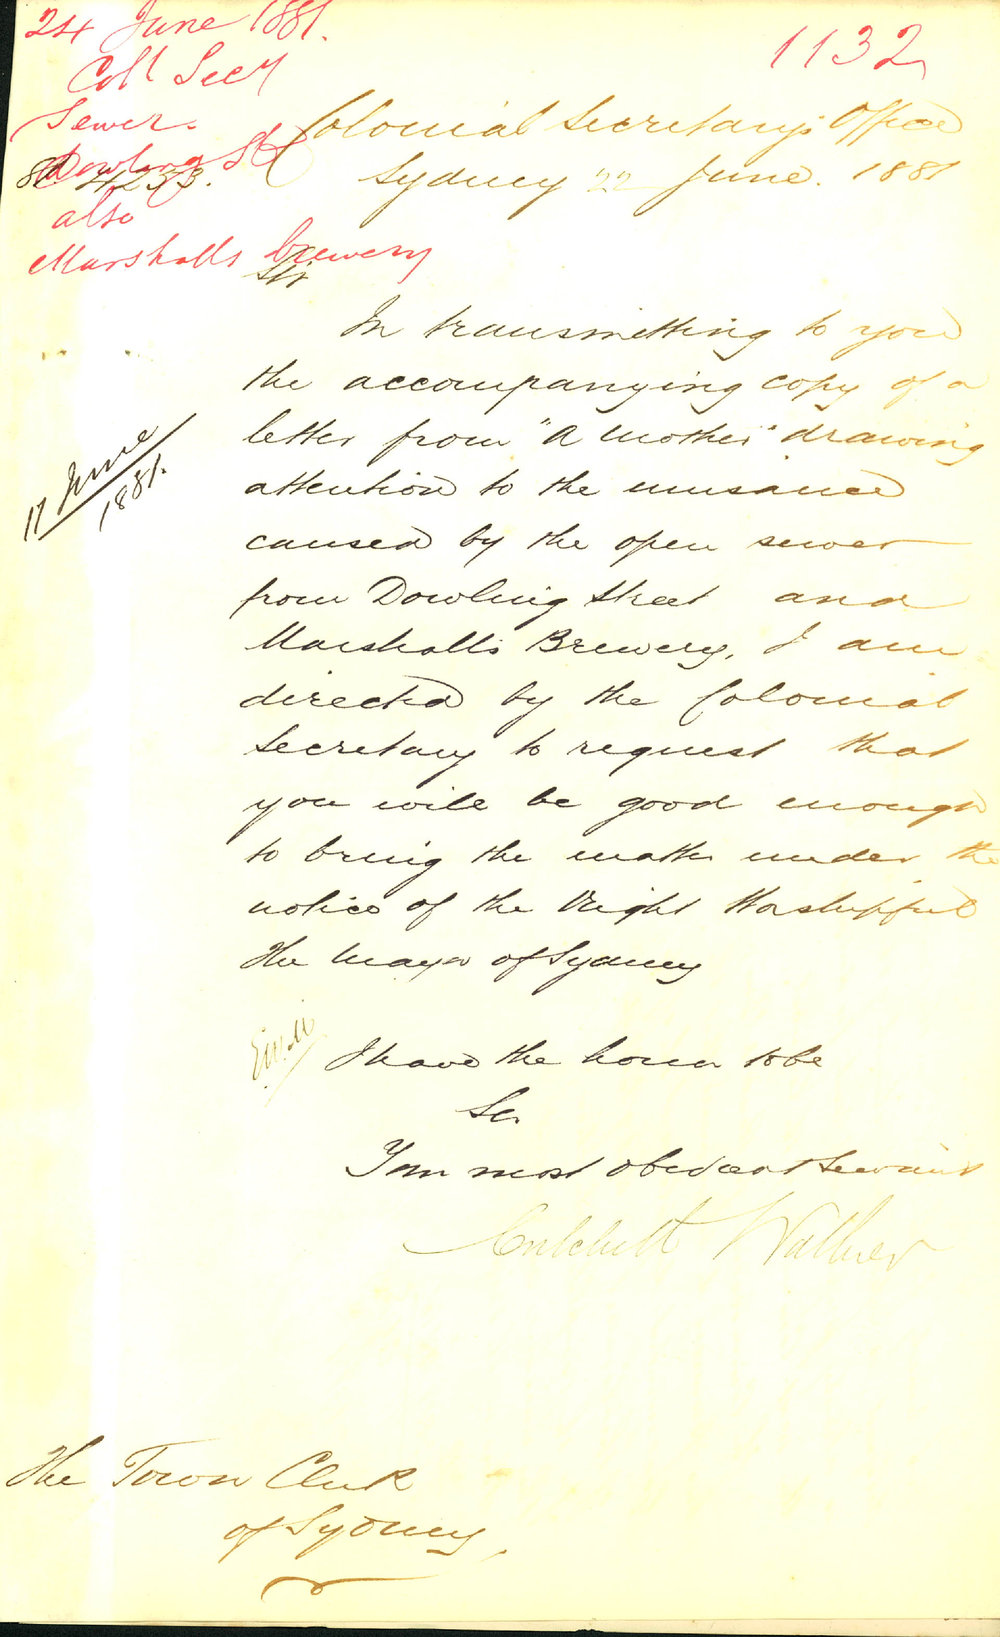 24 June 1881.
1132
Coll Secy
Sewer.
Dowling St
81 4233.
also
Marshalls brewery
Colonial Secretary's Office
Sydney 22 June. 1881
Sir
In transmitting to you
the accompanying copy of a
letter from "A Mother" drawing
attention to the nuisance
caused by the open sewer
from Dowling Street and
Marshall's Brewery, I am
directed by the Colonial
Secretary to request that
you will be good enough
to bring the matter under the
notice of the Right Worshipful
the Mayor of Sydney
17 June
1881.
I have the honor to be
Sir
Your most obedient Servant
Critchett Walker
The Town Clerk
of Sydney,